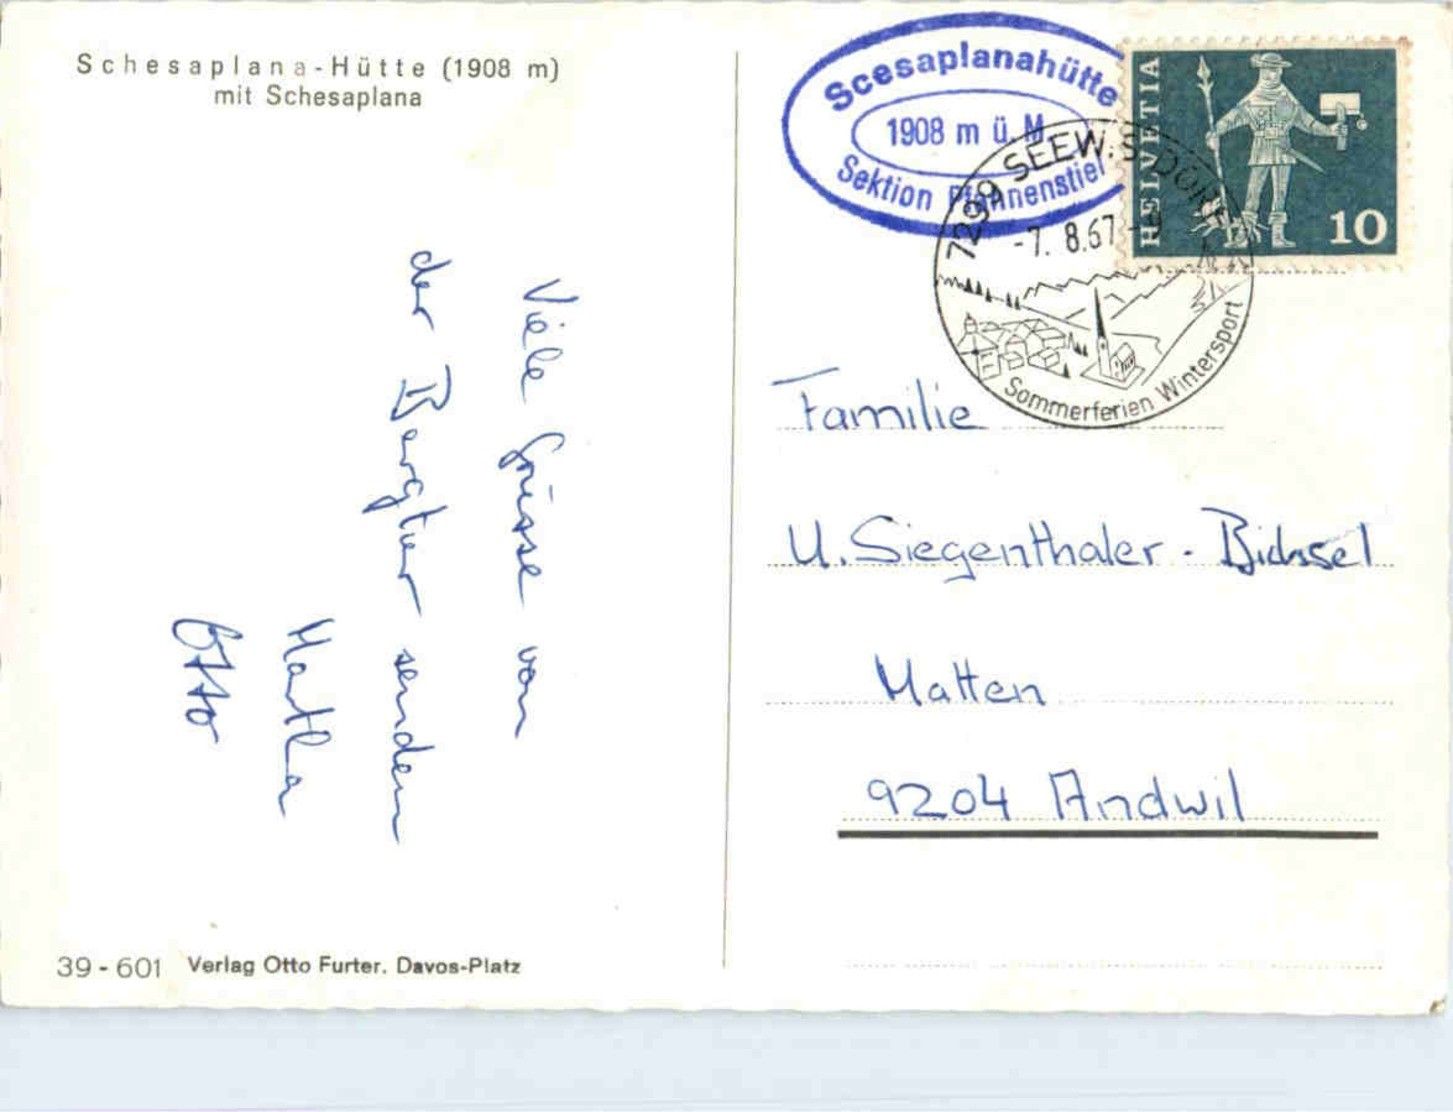 Schesaplana-Hütte (1908 m)
mit Schesaplana
Viele Grüsse von
der Bergtour senden
Martha
Otto
39-601 Verlag Otto Furter, Davos-Platz
Scesaplanahütte
1908 m ü. M.
Sektion Pfannenstiel
HELVETIA
10
7299 SEEWIS DORF
-7. 8.67
Sommerferien Wintersport
Familie
U. Siegenthaler - Bichsel
Matten
9204 Andwil